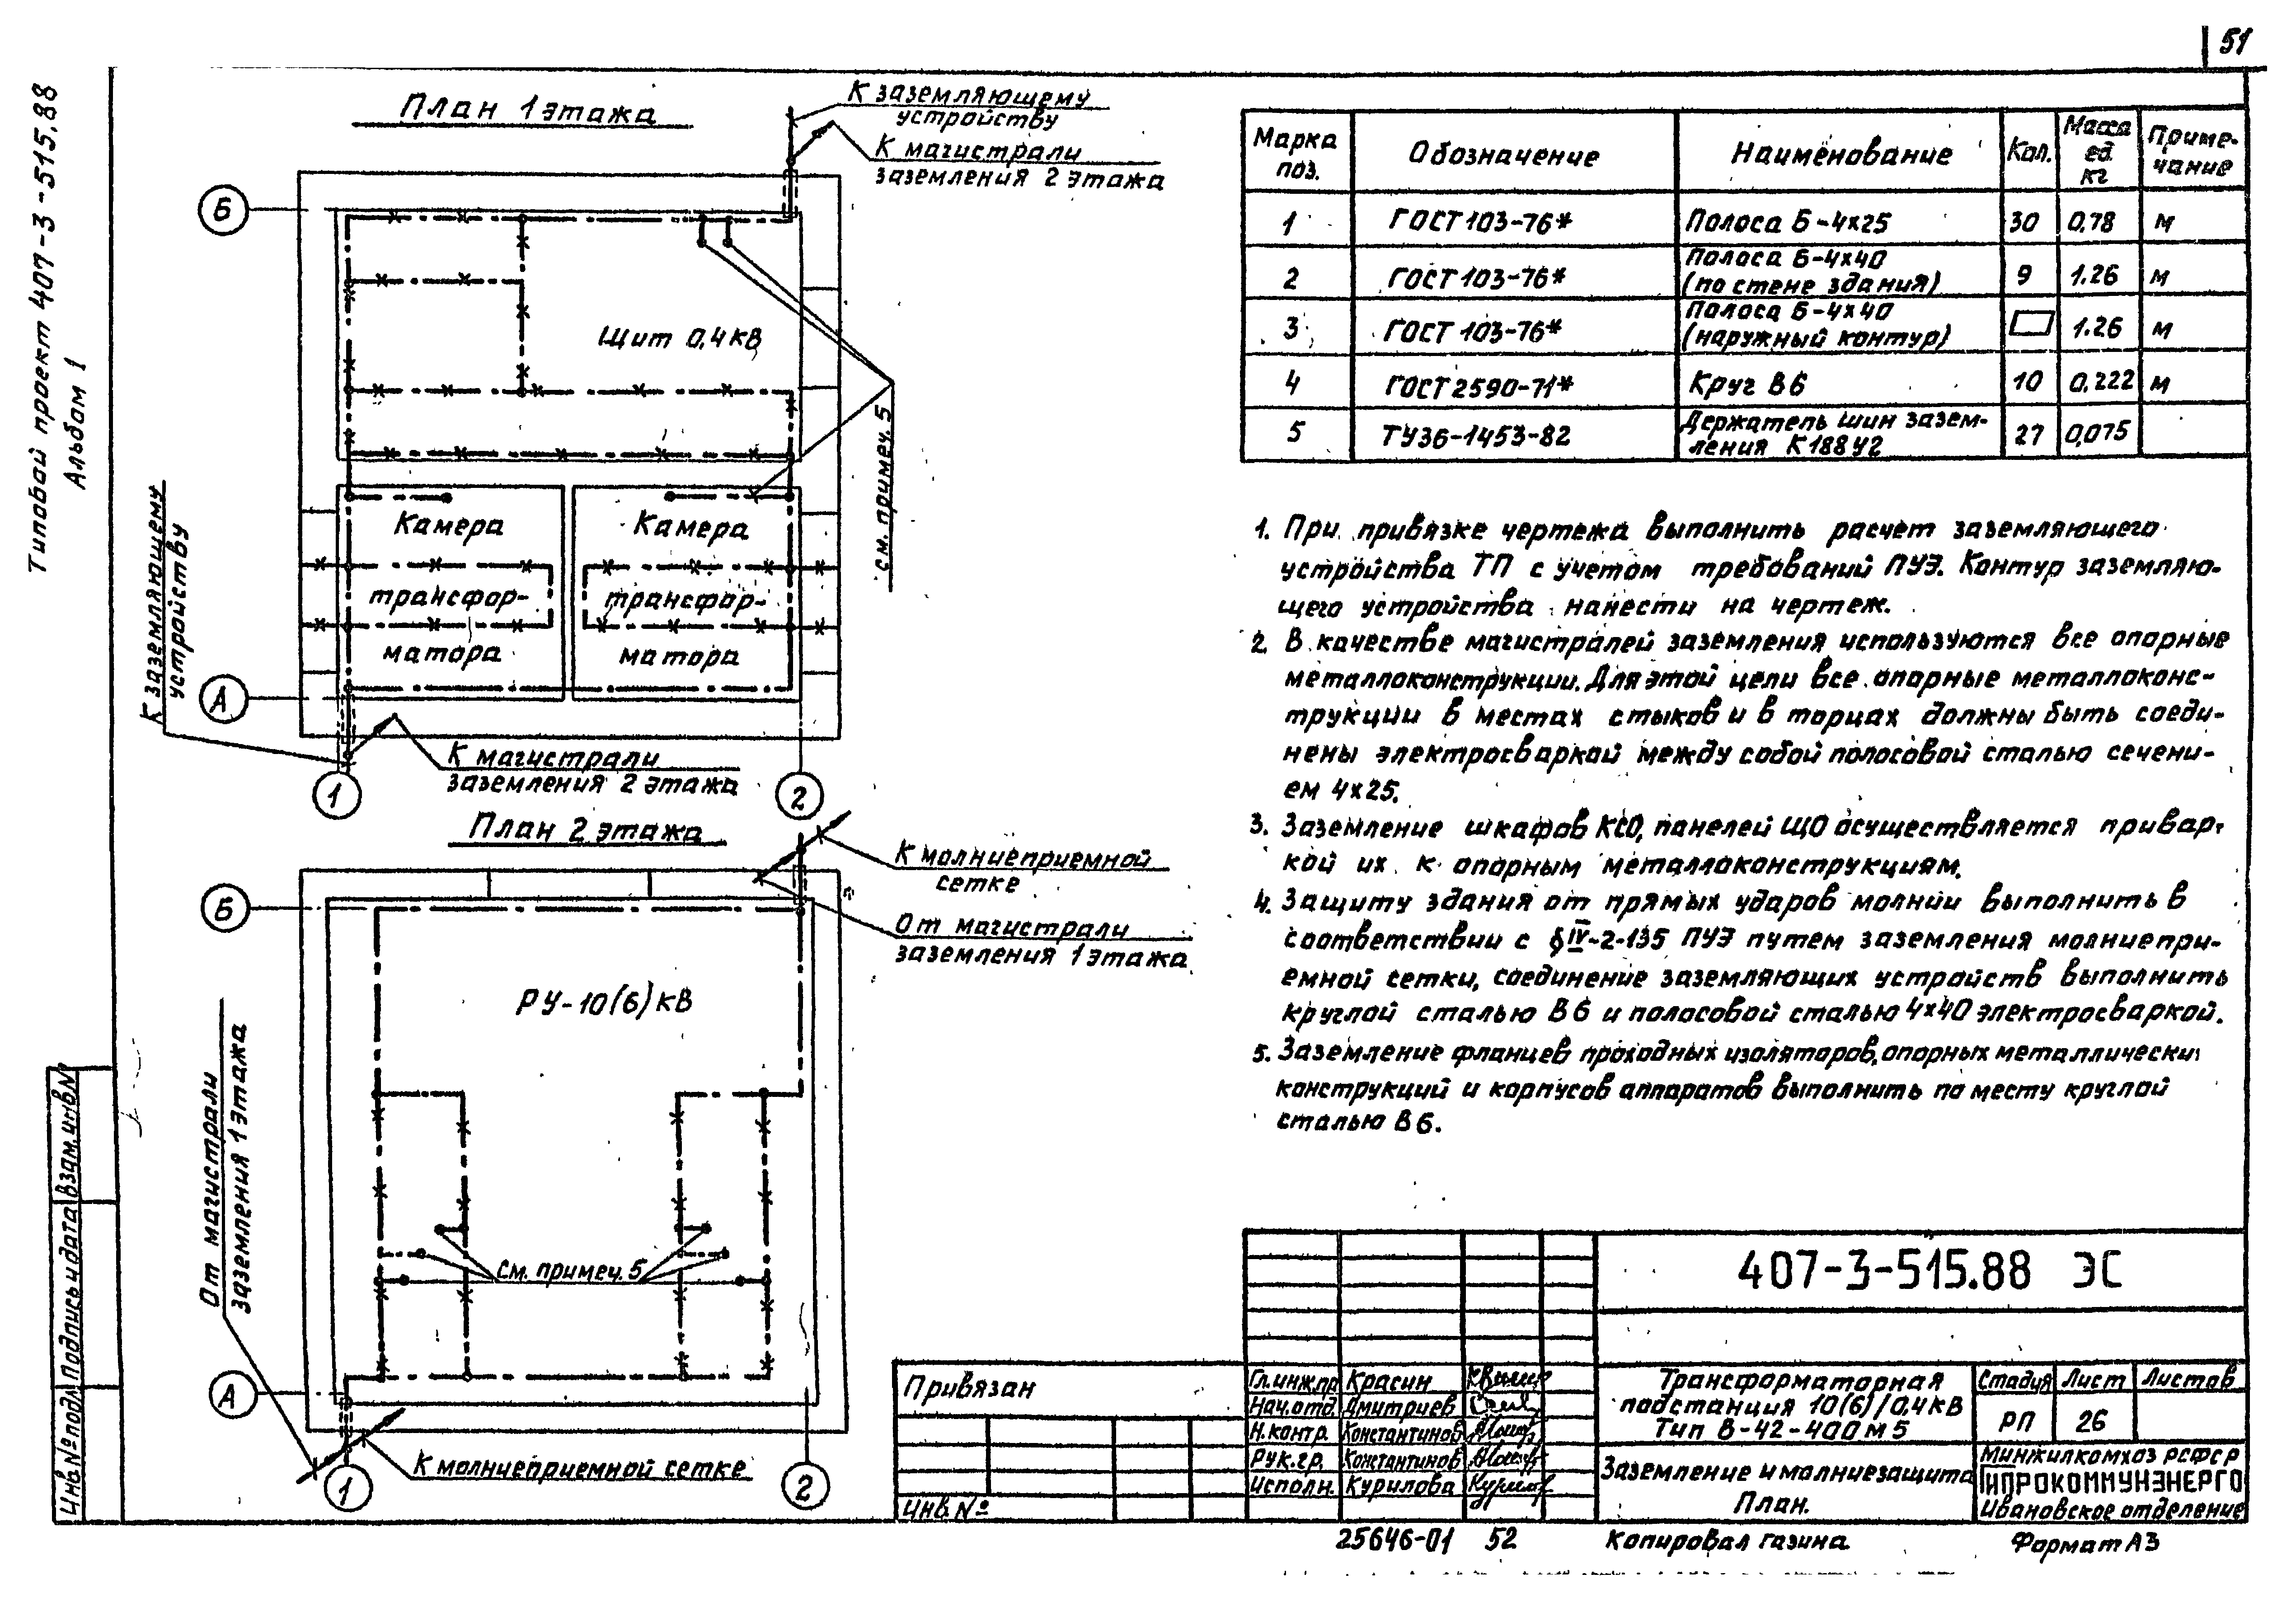 51
Типовой проект 407-3-515.88
Альбом 1
План 1 этажа
К заземляющему
устройству
К магистрали
заземления 2 этажа
Б
Щит 0,4кВ
см. примеч. 5
Камера
трансфор-
матора
Камера
трансфор-
матора
К заземляющему
устройству
А
К магистрали
заземления 2 этажа
1
2
План 2 этажа
К молниеприемной
сетке
Б
От магистрали
заземления 1 этажа
РУ-10(6)кВ
От магистрали
заземления 1 этажа
См. примеч. 5
А
К молниеприемной сетке
1
2
Марка поз. Обозначение Наименование Кол. Масса ед. кг Приме-чание
1 ГОСТ 103-76* Полоса Б-4х25 30 0,78 м
2 ГОСТ 103-76* Полоса Б-4х40 (по стене здания) 9 1.26 м
3 ГОСТ 103-76* Полоса Б-4х40 (наружный контур) 1.26 м
4 ГОСТ 2590-71* Круг В6 10 0,222 м
5 ТУ36-1453-82 Держатель шин зазем-ления К188У2 27 0,075
1. При привязке чертежа выполнить расчет заземляющего
устройства ТП с учетом требований ПУЭ. Контур заземляю-
щего устройства нанести на чертеж.
2. В качестве магистралей заземления используются все опорные
металлоконструкции. Для этой цели все опорные металлоконс-
трукции в местах стыков и в торцах должны быть соеди-
нены электросваркой между собой полосовой сталью сечени-
ем 4х25.
3. Заземление шкафов КСО, панелей ЩО осуществляется привар-
кой их к опорным металлоконструкциям.
4. Защиту здания от прямых ударов молнии выполнить в
соответствии с § IV-2-135 ПУЭ путем заземления молниепри-
емной сетки, соединение заземляющих устройств выполнить
круглой сталью В6 и полосовой сталью 4х40 электросваркой.
5. Заземление фланцев проходных изоляторов, опорных металлически
конструкций и корпусов аппаратов выполнить по месту круглой
сталью В6.
407-3-515.88 ЭС
Привязан
Инв. №
Гл.инж.пр Красин
Нач.отд. Дмитриев
Н.контр. Константинов
Рук.гр. Константинов
Исполн. Курилова
Трансформаторная
подстанция 10(6)/0,4кВ
Тип В-42-400м5
Стадия Лист Листов
РП 26
Заземление и молниезащита
План.
Минжилкомхоз РСФСР
ГИПРОКОММУНЭНЕРГО
Ивановское отделение
Инв.№ подл. Подпись и дата Взам.инв.№
25646-01 52
Копировал газина
Формат А3